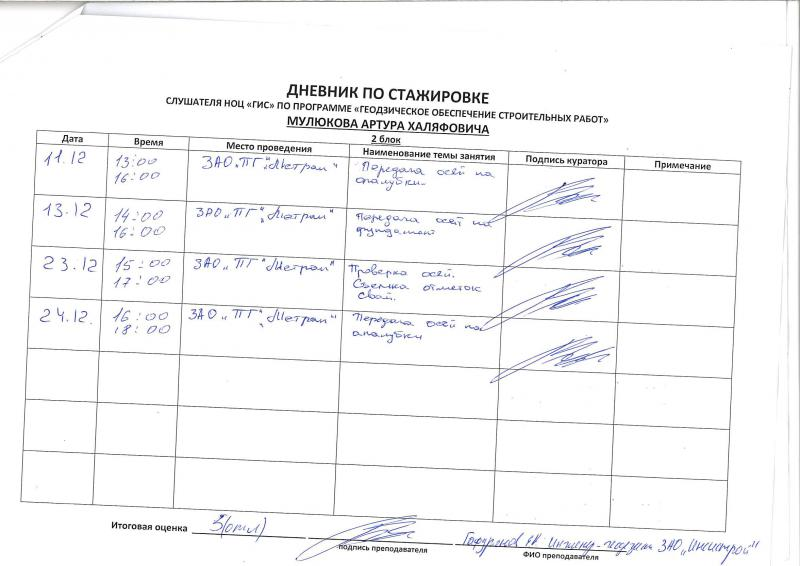 ДНЕВНИК ПО СТАЖИРОВКЕ
СЛУШАТЕЛЯ НОЦ «ГИС» ПО ПРОГРАММЕ «ГЕОДЗИЧЕСКОЕ ОБЕСПЕЧЕНИЕ СТРОИТЕЛЬНЫХ РАБОТ»
МУЛЮКОВА АРТУРА ХАЛЯФОВИЧА
2 блок
Дата Время Место проведения Наименование темы занятия Подпись куратора Примечание
11.12 13:00 ЗАО „ПГ“ „Метрал“ Передача осей на
16:00 опалубки.
13.12 14:00 ЗАО „ПГ“ „Метрал“ Передача осей на
16:00 фундамент
23.12 15:00 ЗАО „ПГ“ „Метрал“ Проверка осей.
17:00 Съемка отметок
свай.
24.12. 16:00 ЗАО „ПГ“ „Метрал“ Передача осей на
18:00 опалубки
Итоговая оценка 5(отл) Инженер-геодезист ЗАО
подпись преподавателя ФИО преподавателя